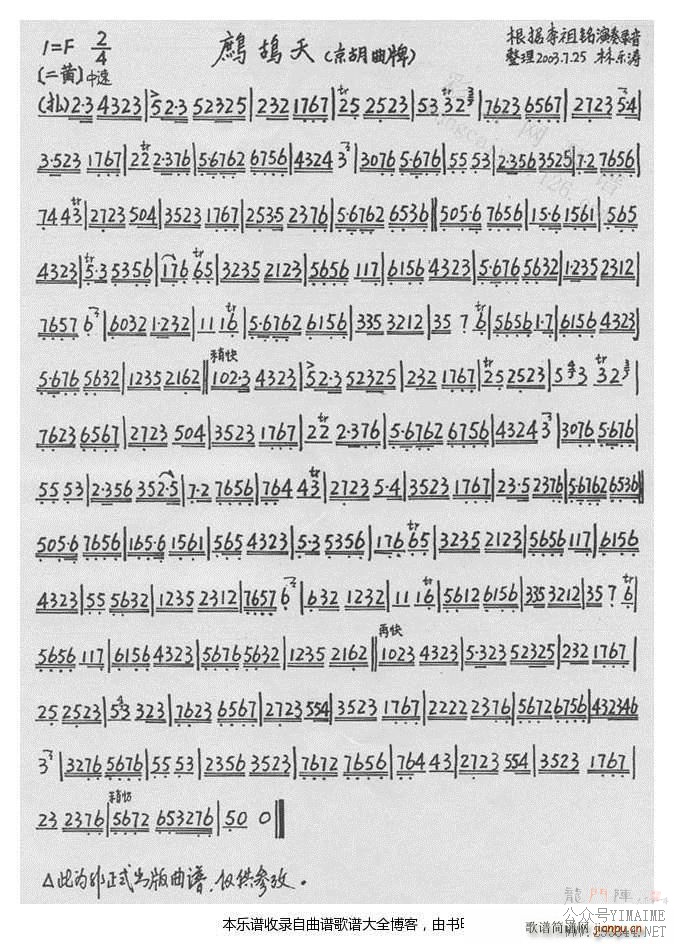 1=F 2/4 鹧鸪天(京胡曲牌) 根据李祖铭演奏录音
(二黄)中速 整理2003.7.25 林乐涛
(扎)2·3 4323|52·3 52325|232 1767|tr25 2523|53 tr32|7623 6567|2723 5·4|
3·523 1767|2tr2 2·376|5·6762 6756|4324 3|3076 5·676|55 53|2·356 3525|7·2 7656|
74 43tr|2723 504|3523 1767|2535 2376|5·6762 6536‖505·6 7656|15·6 1561|565
4323|tr5·3 5356|176 tr65|3235 2123|5656 117|6156 4323|5·676 5632|1·235 2312|
7657 6|6032 1·232|11 1tr6|5·6762 6156|335 3212|35 ? tr6|5656 1·7|6156 4323|
稍快
5·676 5632|1235 2162‖102·3 4323|52·3 52325|232 1767|tr25 2523|543 tr32|
7623 6567|2723 504|3523 1767|22tr 2·376|5·6762 6756|4324 3|3076 5·676|
55 53|2·356 352·5|7·2 7656|764 43tr|2723 5·4|3523 1767|23·5 2376|5·6762 6536‖
505·6 7656|165·6 1561|565 4323|5·3 5356|176 tr65|3235 2123|5656 117|6156
4323|55 5632|1235 2312|7657 6|632 1232|11 1tr6|5612 6156|335 3212|35 ? tr6|
再快
5656 117|6156 4323|5676 5632|1235 2162‖1023 4323|5·323 52325|232 1767|
25 2523|543 323|7623 6567|2723 554|3523 1767|2222 2376|5672 6756|432346
3|3276 5676|55 53|2356 3523|7672 7656|764 43|2723 554|3523 1767|
稍慢
23 2376|5672 653276|50 0‖
△此为非正式出版曲谱,仅供参改。
龍門陣
公众号YIMAIME
本乐谱收录自曲谱歌谱大全博客，由书旺
歌谱简谱网 jianpu.cn